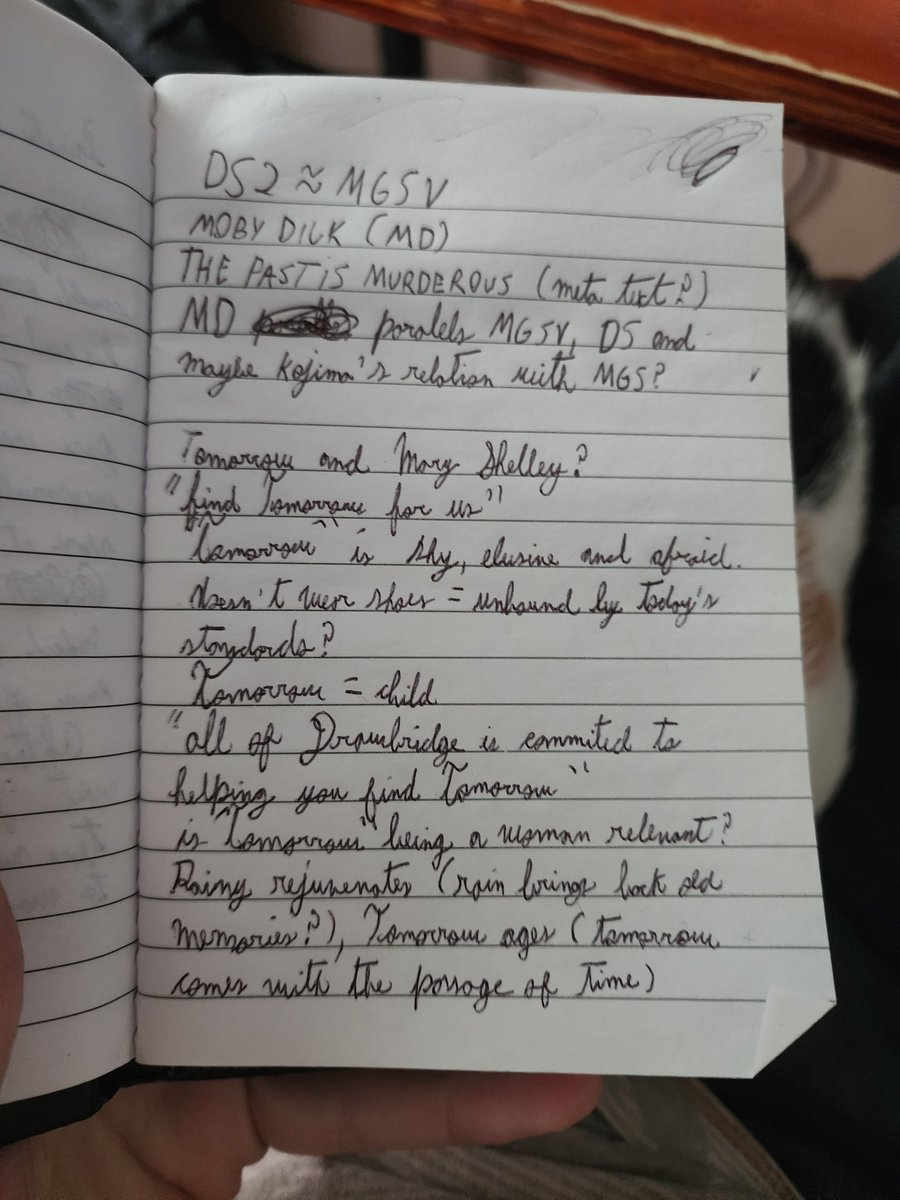 DS2 ≈ MGSV
MOBY DICK (MD)
THE PAST IS MURDEROUS (meta text?)
MD paralels MGSV, DS and
maybe Kojima's relation with MGS?
Tomorrow and Mary Shelley?
"find Tomorrow for us"
"Tomorrow" is shy, elusive and afraid.
Doesn't wear shoes = unbound by today's
standards?
Tomorrow = child
"all of Drawbridge is commited to
helping you find Tomorrow"
is "Tomorrow" being a woman relevant?
Rainy rejuvenates (rain brings back old
memories?), Tomorrow ages (tomorrow
comes with the passage of time)